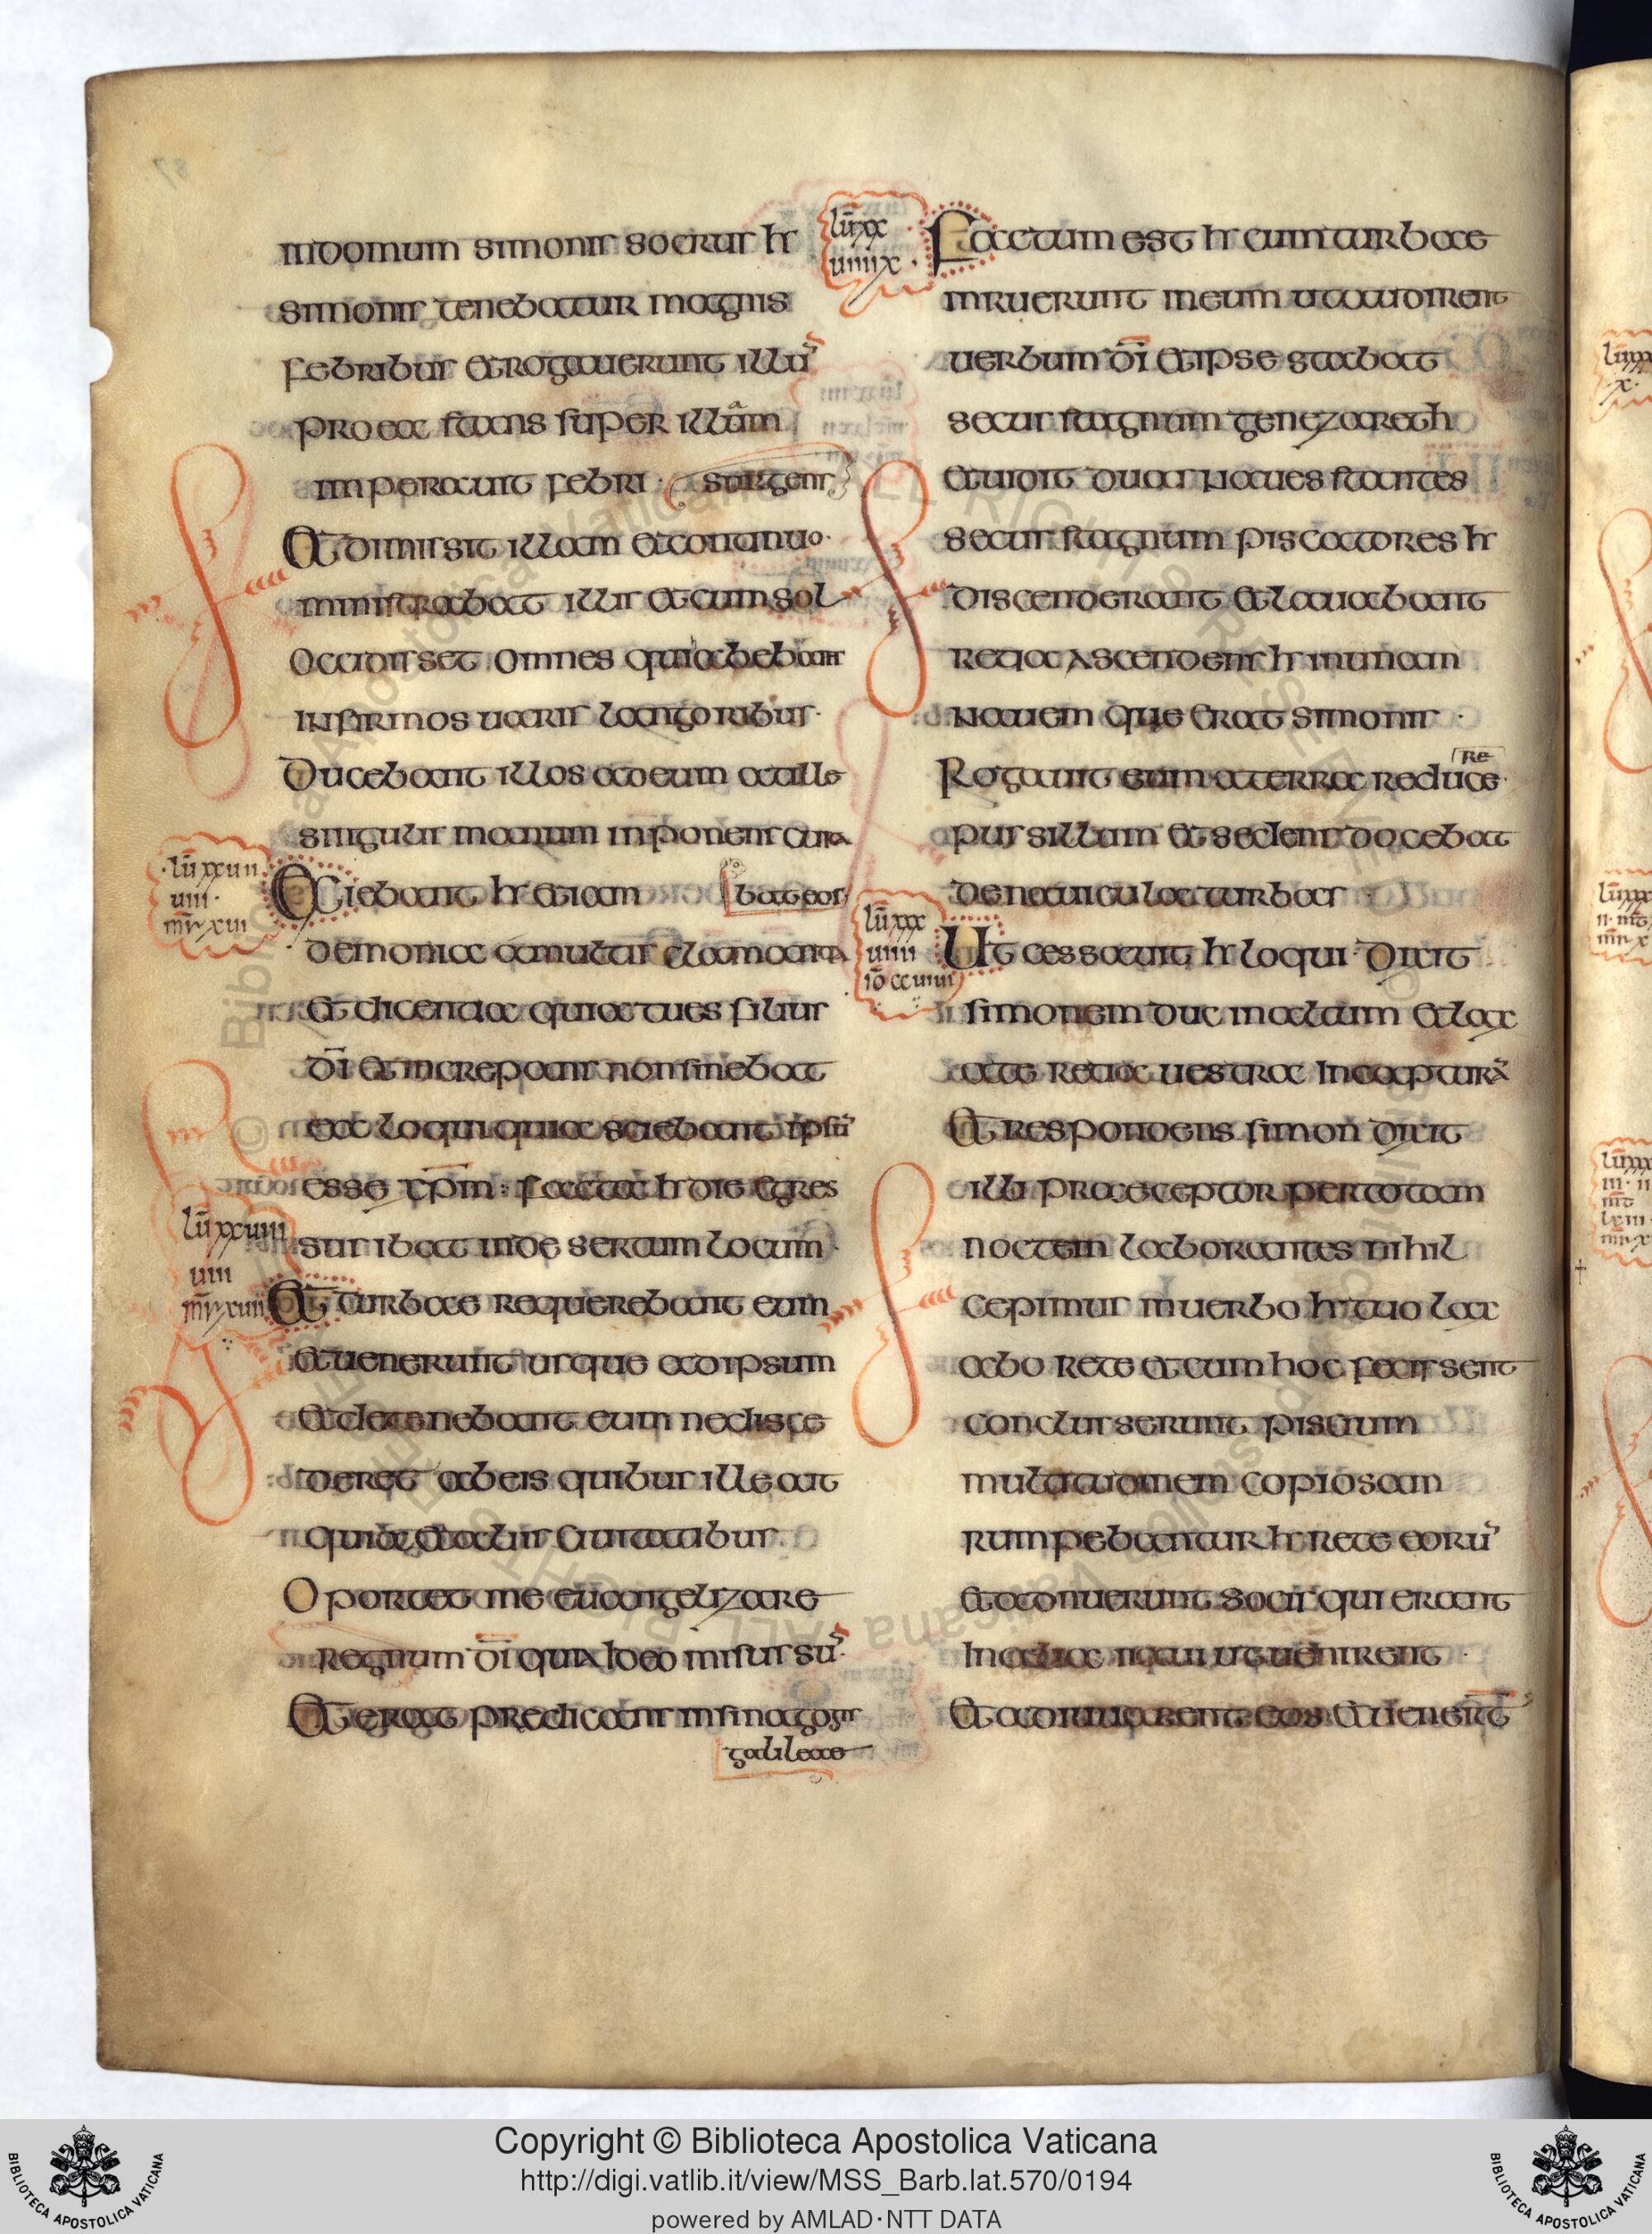 indomum simonis socrus hr
simonis tenebatur magnis
febribus et rogauerunt illū
pro ea stans super illam
imperauit febri · surgens
et dimissit illam et continuo ·
ministrabat illis et cum sol
occidisset omnes qui abebant
infirmos uaris langoribus ·
ducebant illos ad eum at ille
singulis manum inponens cura
bat eos
lū xxuii
uiii ·
mr xiii
exiebant hr etiam
demonia a multis clamantia
et dicentia quia tu es filius
dī et increpans non sinebat
ea loqui quia sciebant ipsū
esse xpm : facta hr die egres
sus ibat inde sertum locum ·
lū xxuiii
uiii
mr xuiii
et turbae requerebant eum
et uenerunt usque ad ipsum
et detenebant eum ne disce
deret ab eis quibus ille ait
quia et aliis ciuitatibus
oportet me euangelizare
regnum dī quia ideo misus sū ·
et erat predicans in sinagogis
galileae
lū xx
uiiii x ·
factum est hr cum turbae
inruerunt in eum ut audirent
uerbum dī et ipse stabat
secus stagnum genezareth
et uidit duas naues stantes
secus stagnum piscatores hr
discenderant et lauabant
retia ascendens hr in unam
nauem que erat simonis ·
rogauit eum a terra reduce
re
pussillum et sedens docebat
de nauicula turbas
lū xxx
uiiii
iō ccuiiii
ut cessauit hr loqui dixit
simonem duc in altum et lax
ate retia uestra in capturā
et respondens simon dixit
illi praeceptor per totam
noctem laborantes nihil
cepimus in uerbo hr tuo lax
abo rete et cum hoc fecissent
conclusserunt piscium
multitudinem copiosam
rumpebantur hr rete eorū
et adnuerunt socis qui erant
in alia naui ut uenirent ·
et adiuuarent eos et uenerūt
Copyright © Biblioteca Apostolica Vaticana
http://digi.vatlib.it/view/MSS_Barb.lat.570/0194
powered by AMLAD·NTT DATA
BIBLIOTECA APOSTOLICA VATICANA
BIBLIOTECA APOSTOLICA VATICANA